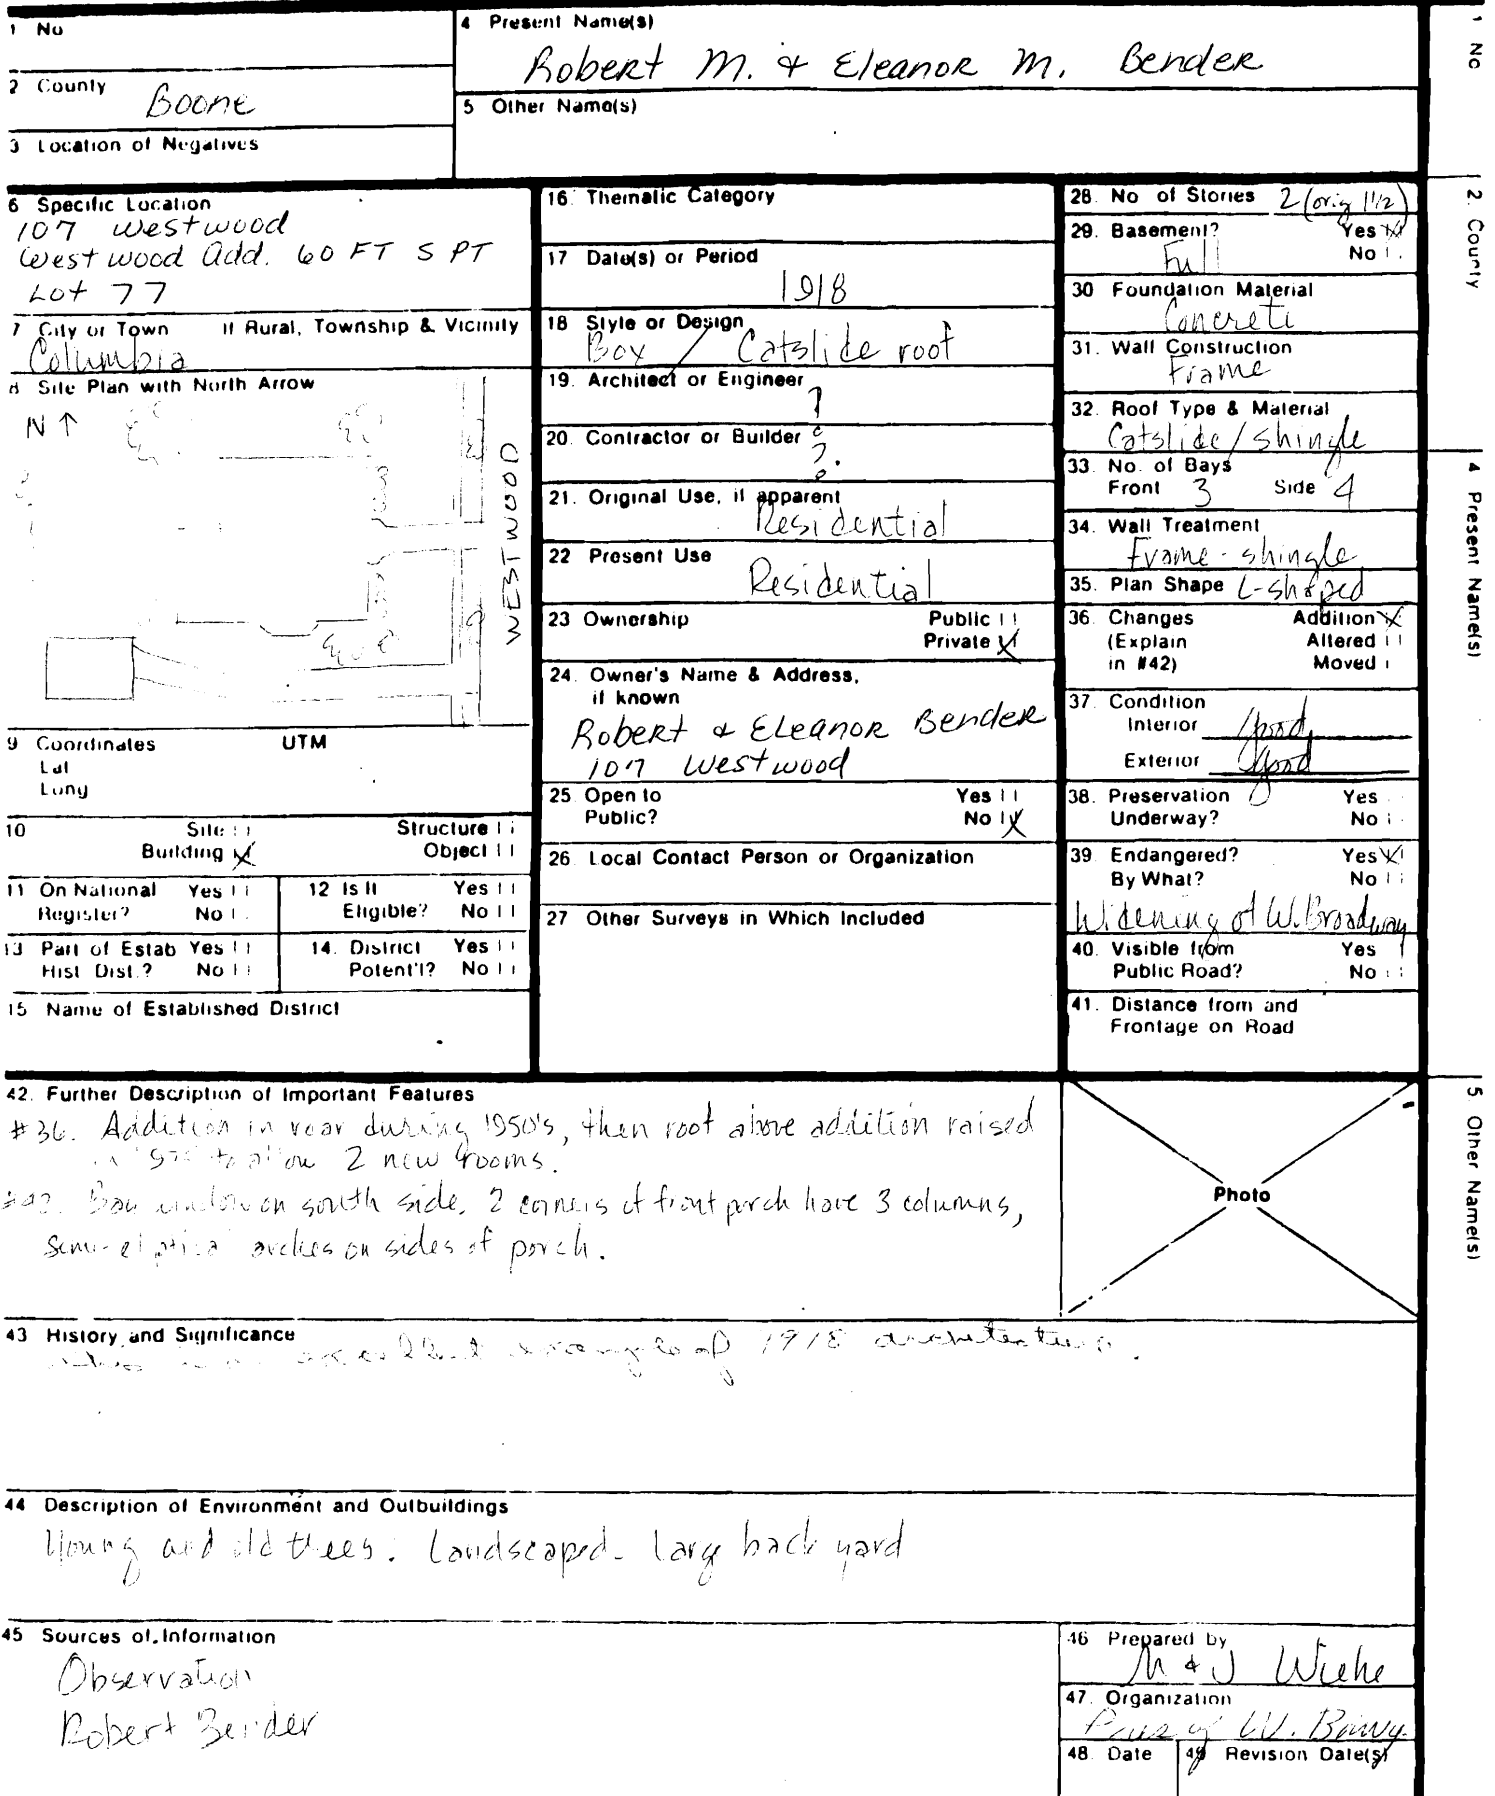 1 No
4 Present Name(s)
Robert M. & Eleanor M. Bender
2 County
Boone
5 Other Name(s)
3 Location of Negatives
6 Specific Location
107 Westwood
Westwood Add. 60 FT S PT
Lot 77
7 City or Town If Rural, Township & Vicinity
Columbia
8 Site Plan with North Arrow
N ↑
WESTWOOD
9 Coordinates UTM
Lat
Long
10 Site Structure
Building Object
11 On National Register? Yes No
12 Is It Eligible? Yes No
13 Part of Estab Hist Dist.? Yes No
14. District Potent'l? Yes No
15 Name of Established District
16. Thematic Category
17 Date(s) or Period
1918
18 Style or Design
Box / Catslide roof
19. Architect or Engineer
?
20. Contractor or Builder
?
21. Original Use, if apparent
Residential
22 Present Use
Residential
23 Ownership Public
Private X
24. Owner's Name & Address,
if known
Robert & Eleanor Bender
107 Westwood
25 Open to Yes
Public? No X
26. Local Contact Person or Organization
27 Other Surveys in Which Included
28. No of Stories 2 (orig 1 1/2)
29. Basement? Yes X
Full No
30 Foundation Material
Concrete
31. Wall Construction
Frame
32. Roof Type & Material
Catslide/shingle
33. No. of Bays
Front 3 Side 4
34. Wall Treatment
Frame - shingle
35. Plan Shape L-shaped
36. Changes Addition X
(Explain Altered
in #42) Moved
37. Condition
Interior Good
Exterior Good
38. Preservation Yes
Underway? No
39. Endangered? Yes X
By What? No
Widening of W. Broadway
40. Visible from Yes
Public Road? No
41. Distance from and
Frontage on Road
42. Further Description of Important Features
#36. Addition in rear during 1950's, then roof above addition raised
to allow 2 new rooms.
Bay window on south side. 2 corners of front porch have 3 columns,
semi-eliptical arches on sides of porch.
Photo
43 History and Significance
excellent example of 1918 architecture.
44 Description of Environment and Outbuildings
Young and old trees. Landscaped. Large back yard
45 Sources of Information
Observation
Robert Bender
46 Prepared by
M & J Wiehe
47. Organization
W.
48. Date 49 Revision Date(s)
1 No
2. County
4 Present Name(s)
5 Other Name(s)